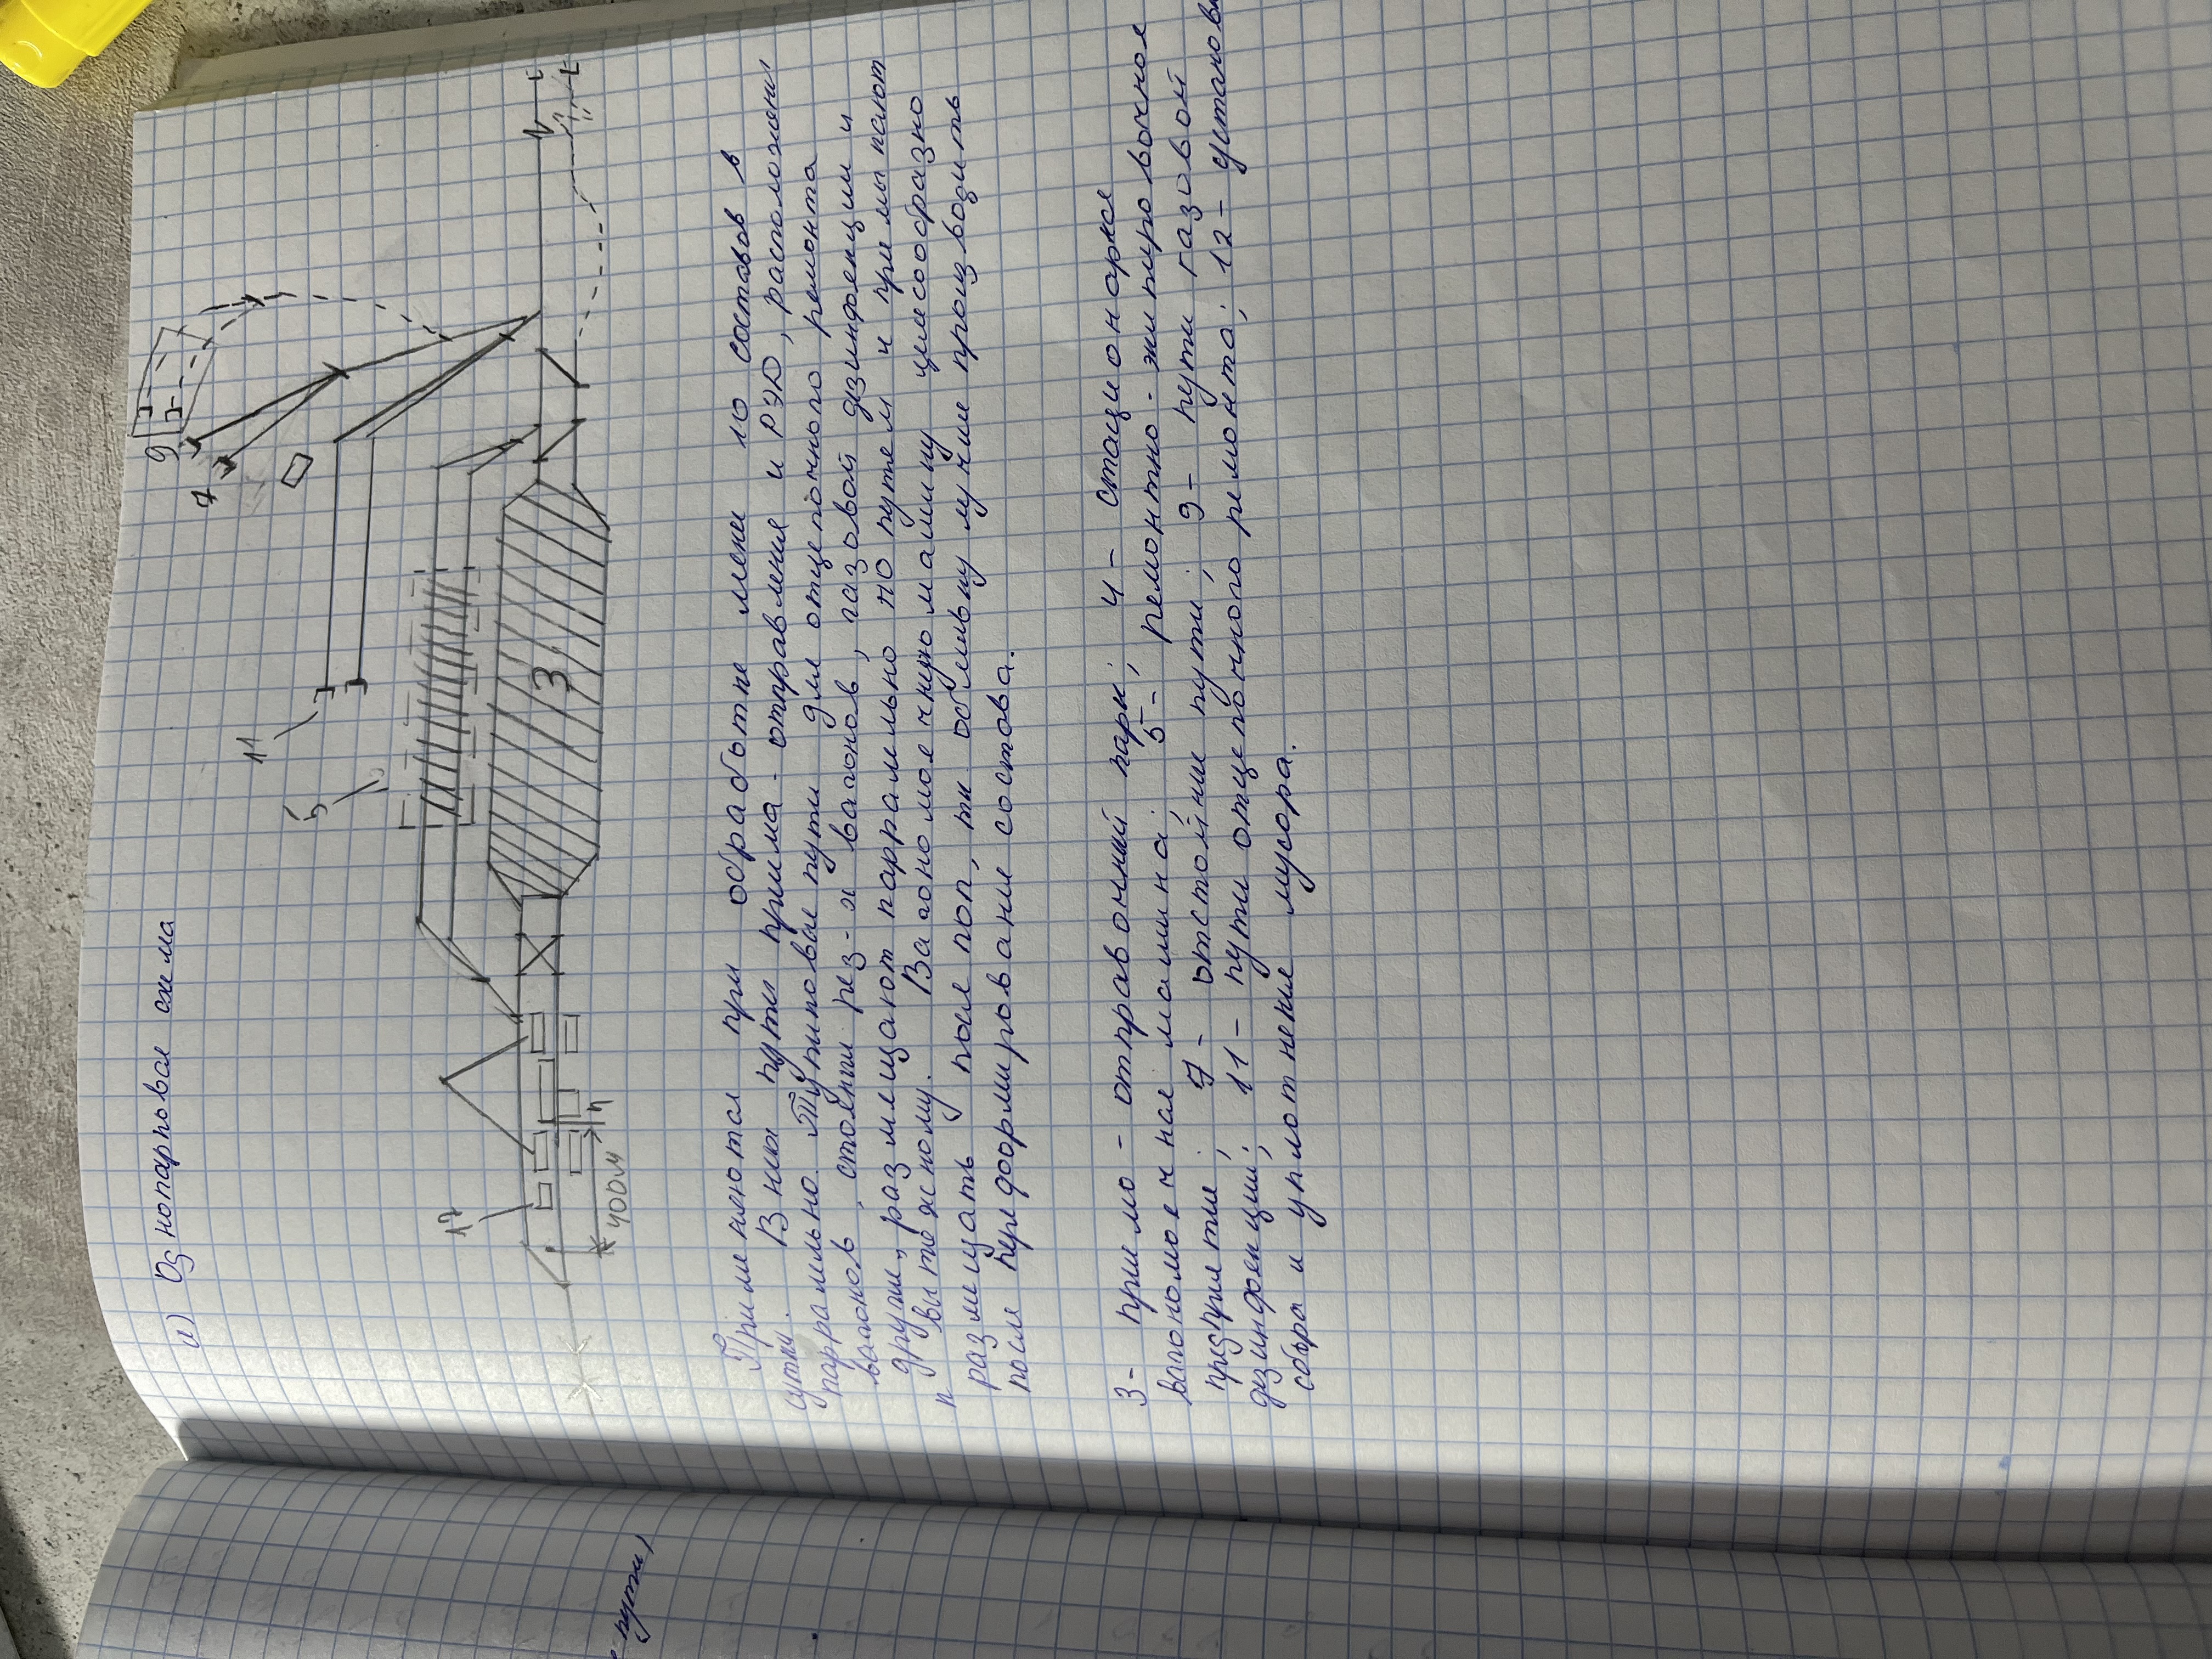 а) Однопарковая схема
11
5
9
7
3
12
4
400м
Применяются при обработке менее 10 составов в
сутки. В них пути приёма-отправления и РЭД, расположены
параллельно. Тупиковые пути для отцепочного ремонта
вагонов, стоянки рез-я вагонов, газовой дезинфекции и
другие, размещают параллельно по путем и примыкают
к вытяжному. Вагономоечную машину целесообразно
размещать после поп, тк. обмывку лучше производить
после переформирование состава.
3- приемо-отправочный парк; 4- стационарже
вагономоечная машина; 5-; ремонтно-экипировочное
предпрятие; 7- отстойнки пути; 9- пути газовой
дезинфекции; 11- пути отцепочного ремонта; 12- установк
сбора и уплотнения мусора.
пути)